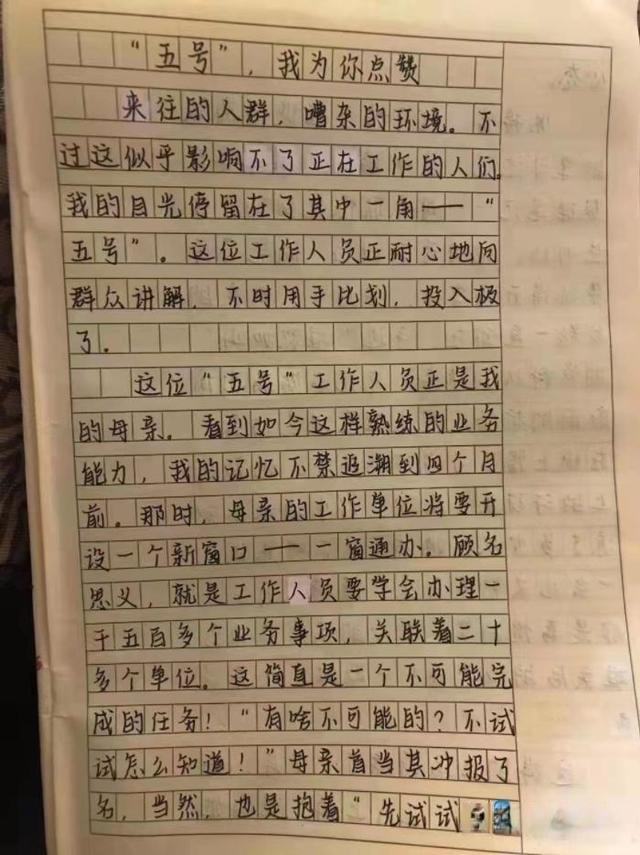 “五号”，我为你点赞
来往的人群，嘈杂的环境。不
过这似乎影响不了正在工作的人们。
我的目光停留在了其中一角——“
五号”。这位工作人员正耐心地向
群众讲解，不时用手比划，投入极
了。
这位“五号”工作人员正是我
的母亲。看到如今这样熟练的业务
能力，我的记忆不禁追溯到四个月
前。那时，母亲的工作单位将要开
设一个新窗口——一窗通办。顾名
思义，就是工作人员要学会办理一
千五百多个业务事项，关联着二十
多个单位。这简直是一个不可能完
成的任务！“有啥不可能的？不试
试怎么知道！”母亲首当其冲报了
名，当然，也是抱着“先试试